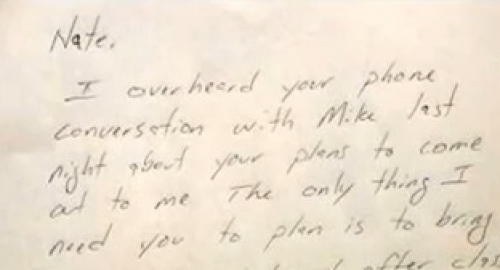 Nate,
I overheard your phone
conversation with Mike last
night about your plans to come
out to me The only thing I
need you to plan is to bring
after clas